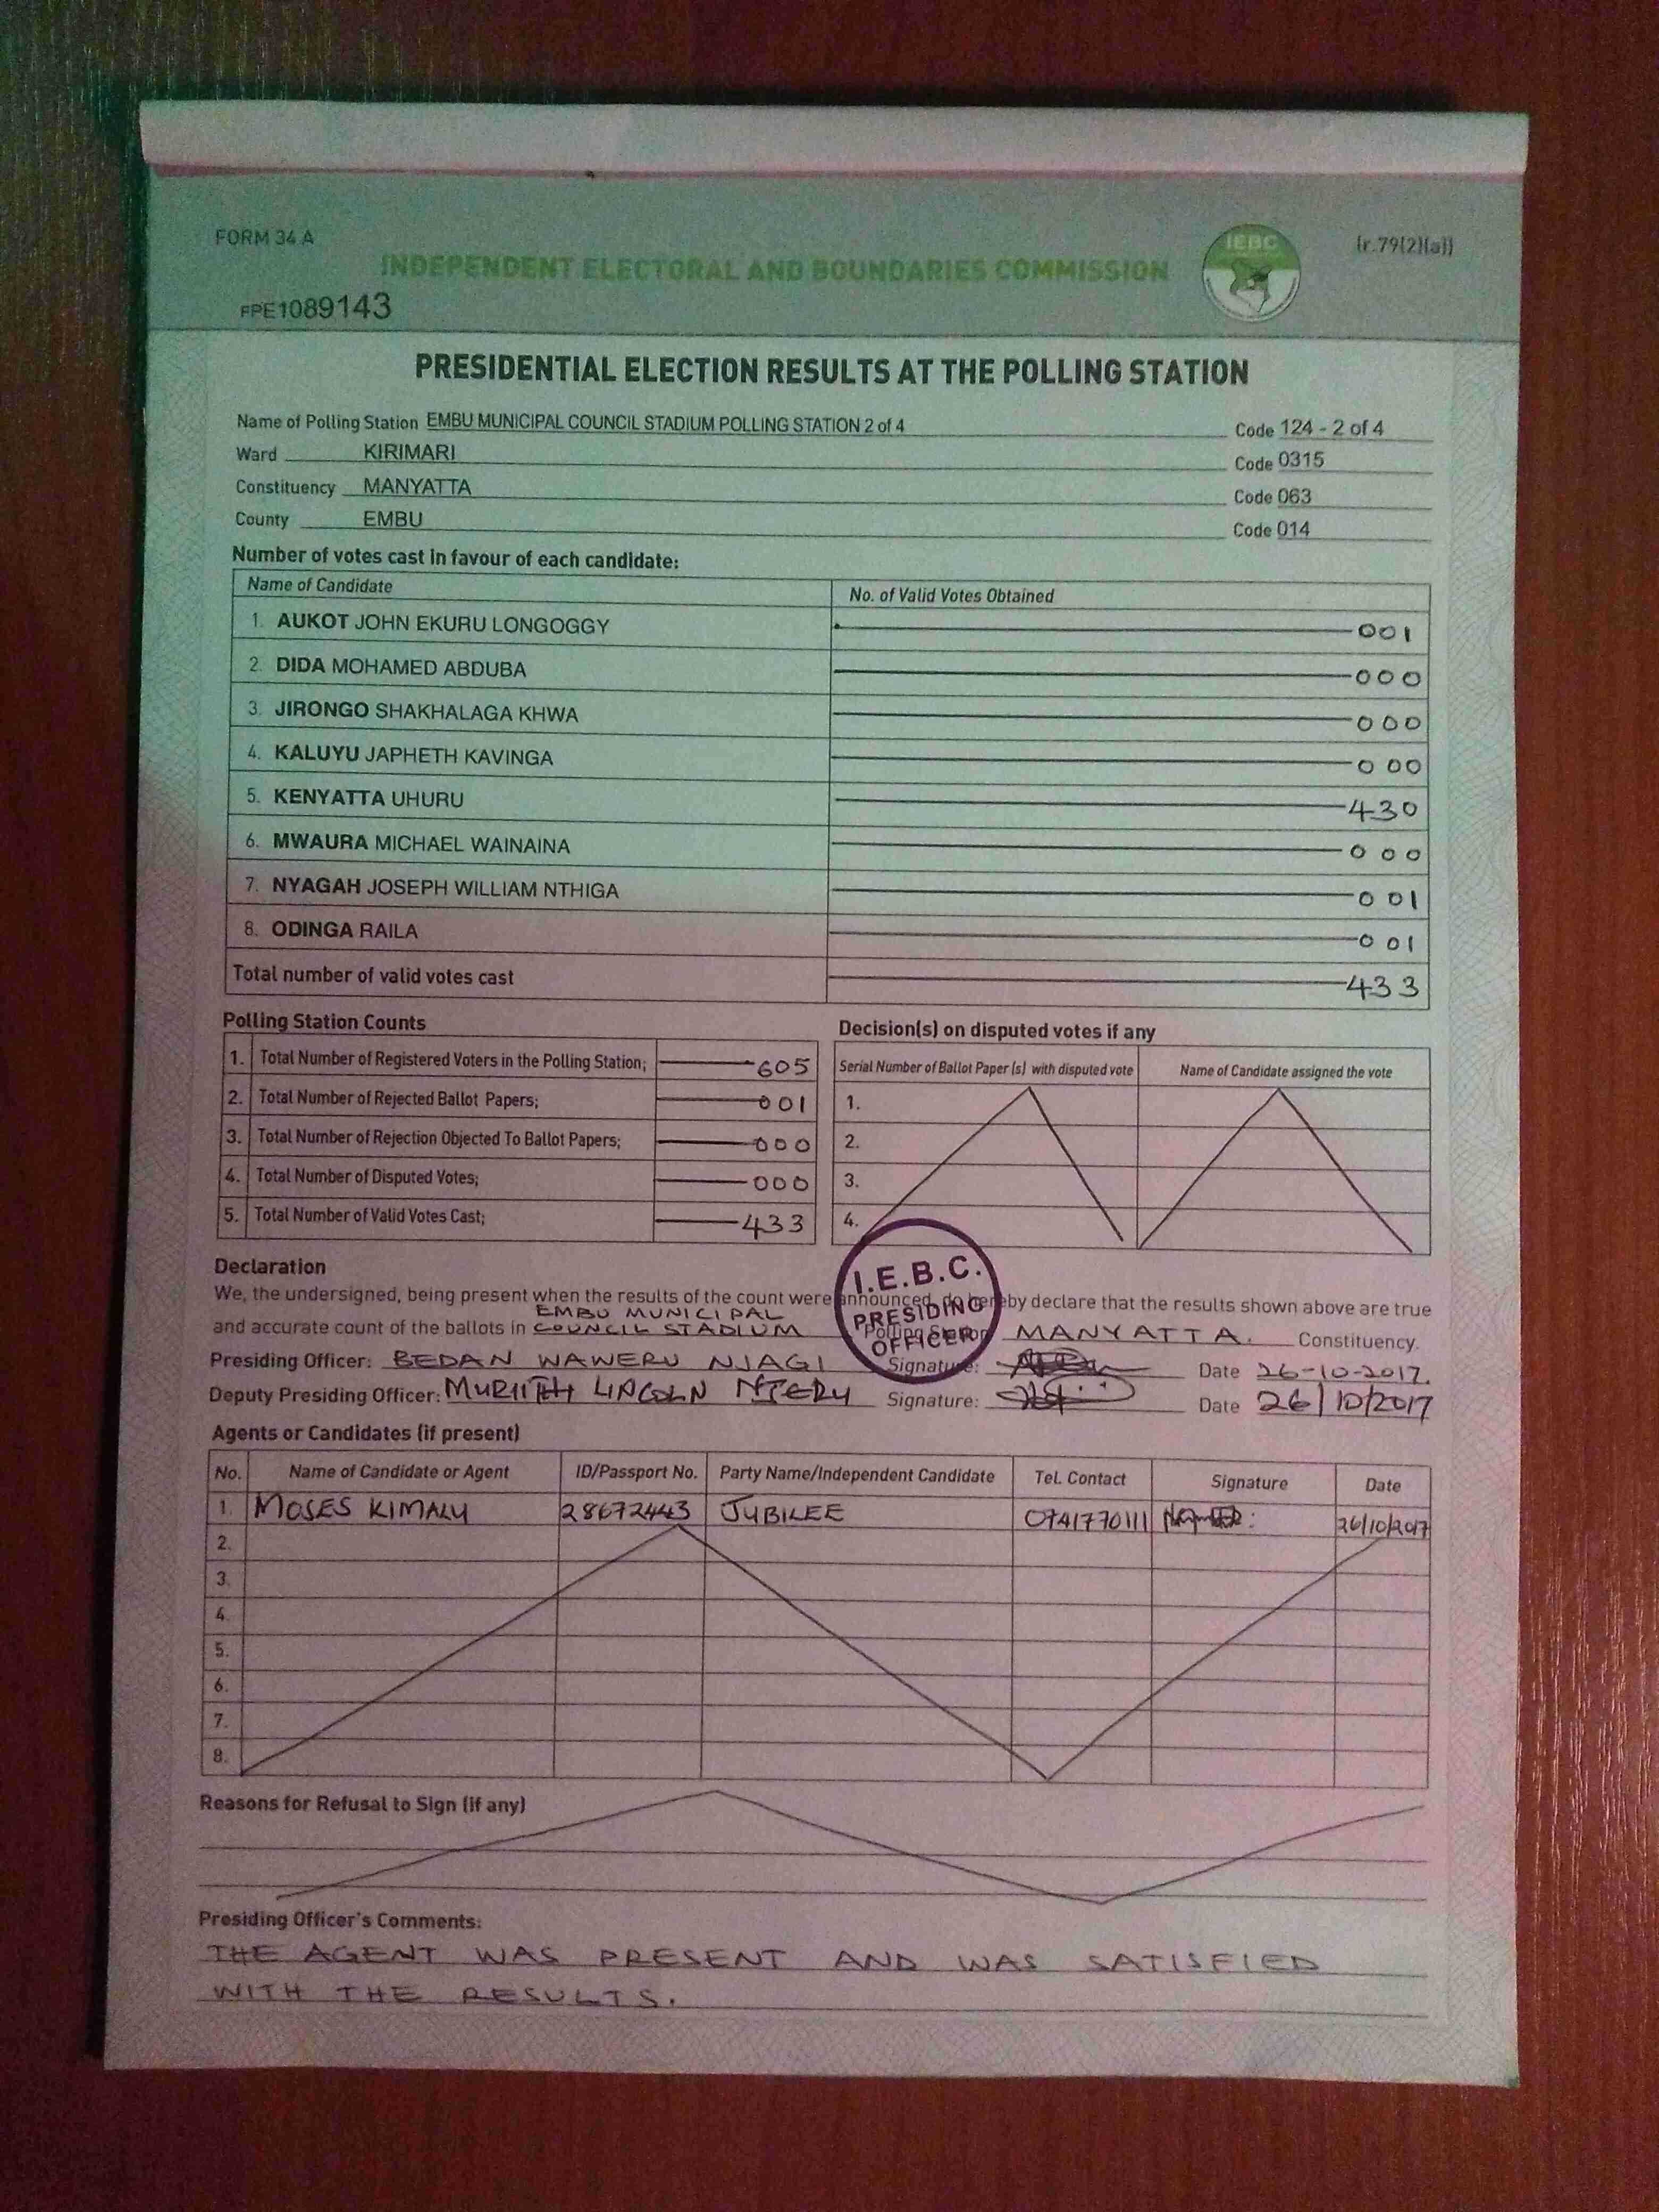 FORM 34 A
(r.79(2)(a))
INDEPENDENT ELECTORAL AND BOUNDARIES COMMISSION
IEBC
FPE1089143
PRESIDENTIAL ELECTION RESULTS AT THE POLLING STATION
Name of Polling Station EMBU MUNICIPAL COUNCIL STADIUM POLLING STATION 2 of 4 Code 124 - 2 of 4
Ward KIRIMARI Code 0315
Constituency MANYATTA Code 063
County EMBU Code 014
Number of votes cast in favour of each candidate:
Name of Candidate No. of Valid Votes Obtained
1. AUKOT JOHN EKURU LONGOGGY 001
2. DIDA MOHAMED ABDUBA 000
3. JIRONGO SHAKHALAGA KHWA 000
4. KALUYU JAPHETH KAVINGA 000
5. KENYATTA UHURU 430
6. MWAURA MICHAEL WAINAINA 000
7. NYAGAH JOSEPH WILLIAM NTHIGA 001
8. ODINGA RAILA 001
Total number of valid votes cast 433
Polling Station Counts
1. Total Number of Registered Voters in the Polling Station; 605
2. Total Number of Rejected Ballot Papers; 001
3. Total Number of Rejection Objected To Ballot Papers; 000
4. Total Number of Disputed Votes; 000
5. Total Number of Valid Votes Cast; 433
Decision(s) on disputed votes if any
Serial Number of Ballot Paper (s) with disputed vote Name of Candidate assigned the vote
1.
2.
3.
4.
I.E.B.C.
PRESIDING
OFFICER
Declaration
We, the undersigned, being present when the results of the count were announced, do hereby declare that the results shown above are true
EMBU MUNICIPAL
and accurate count of the ballots in COUNCIL STADIUM Polling Station MANYATTA. Constituency.
Presiding Officer: BEDAN WAWERU NJAGI Signature: Date 26-10-2017.
Deputy Presiding Officer: MURIITHI LINCOLN Signature: Date 26/10/2017
Agents or Candidates (if present)
No. Name of Candidate or Agent ID/Passport No. Party Name/Independent Candidate Tel. Contact Signature Date
1. MOSES KIMALU 28672443 JUBILEE 0741770111 26/10/2017
2.
3.
4.
5.
6.
7.
8.
Reasons for Refusal to Sign (if any)
Presiding Officer's Comments:
THE AGENT WAS PRESENT AND WAS SATISFIED
WITH THE RESULTS.